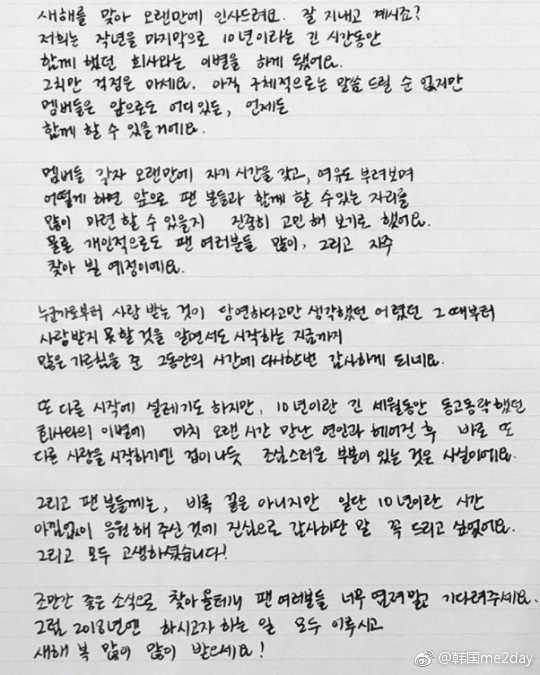 새해를 맞아 오랜만에 인사드려요. 잘 지내고 계시죠?
저희는 작년을 마지막으로 10년이라는 긴 시간동안
함께 했던 회사와는 이별을 하게 됐어요.
그치만 걱정은 마세요. 아직 구체적으로는 말씀 드릴 순 없지만
멤버들은 앞으로도 어디 있든, 언제든
함께 할 수 있을거에요.
멤버들 각자 오랜만에 자기 시간을 갖고, 여유도 부려보며
어떻게 하면 앞으로 팬 분들과 함께 할 수 있는 자리를
많이 마련 할 수 있을지 진중히 고민 해 보기로 했어요.
물론 개인적으로도 팬 여러분들 많이, 그리고 자주
찾아 뵐 예정이에요.
누군가로부터 사랑 받는 것이 당연하다고만 생각했던 어렸던 그 때부터
사랑받지 못할 것을 알면서도 시작하는 지금까지
많은 가르침을 준 그동안의 시간에 다시한번 감사하게 되네요.
또 다른 시작에 설레기도 하지만, 10년이란 긴 세월동안 동고동락했던
회사와의 이별에 마치 오랜 시간 만난 연인과 헤어진 후 바로 또
다른 사랑을 시작하기엔 겁이 나듯 조심스러운 부분이 있는 것은 사실이에요.
그리고 팬 분들께는, 비록 끝은 아니지만 일단 10년이란 시간
아낌없이 응원해 주신 것에 진심으로 감사하단 말 꼭 드리고 싶었어요.
그리고 모두 고생하셨습니다!
조만간 좋은 소식으로 찾아올테니 팬 여러분들 너무 염려말고 기다려주세요.
그럼 2018년엔 하시고자 하는 일 모두 이루시고
새해 복 많이 많이 받으세요!
@韩国me2day